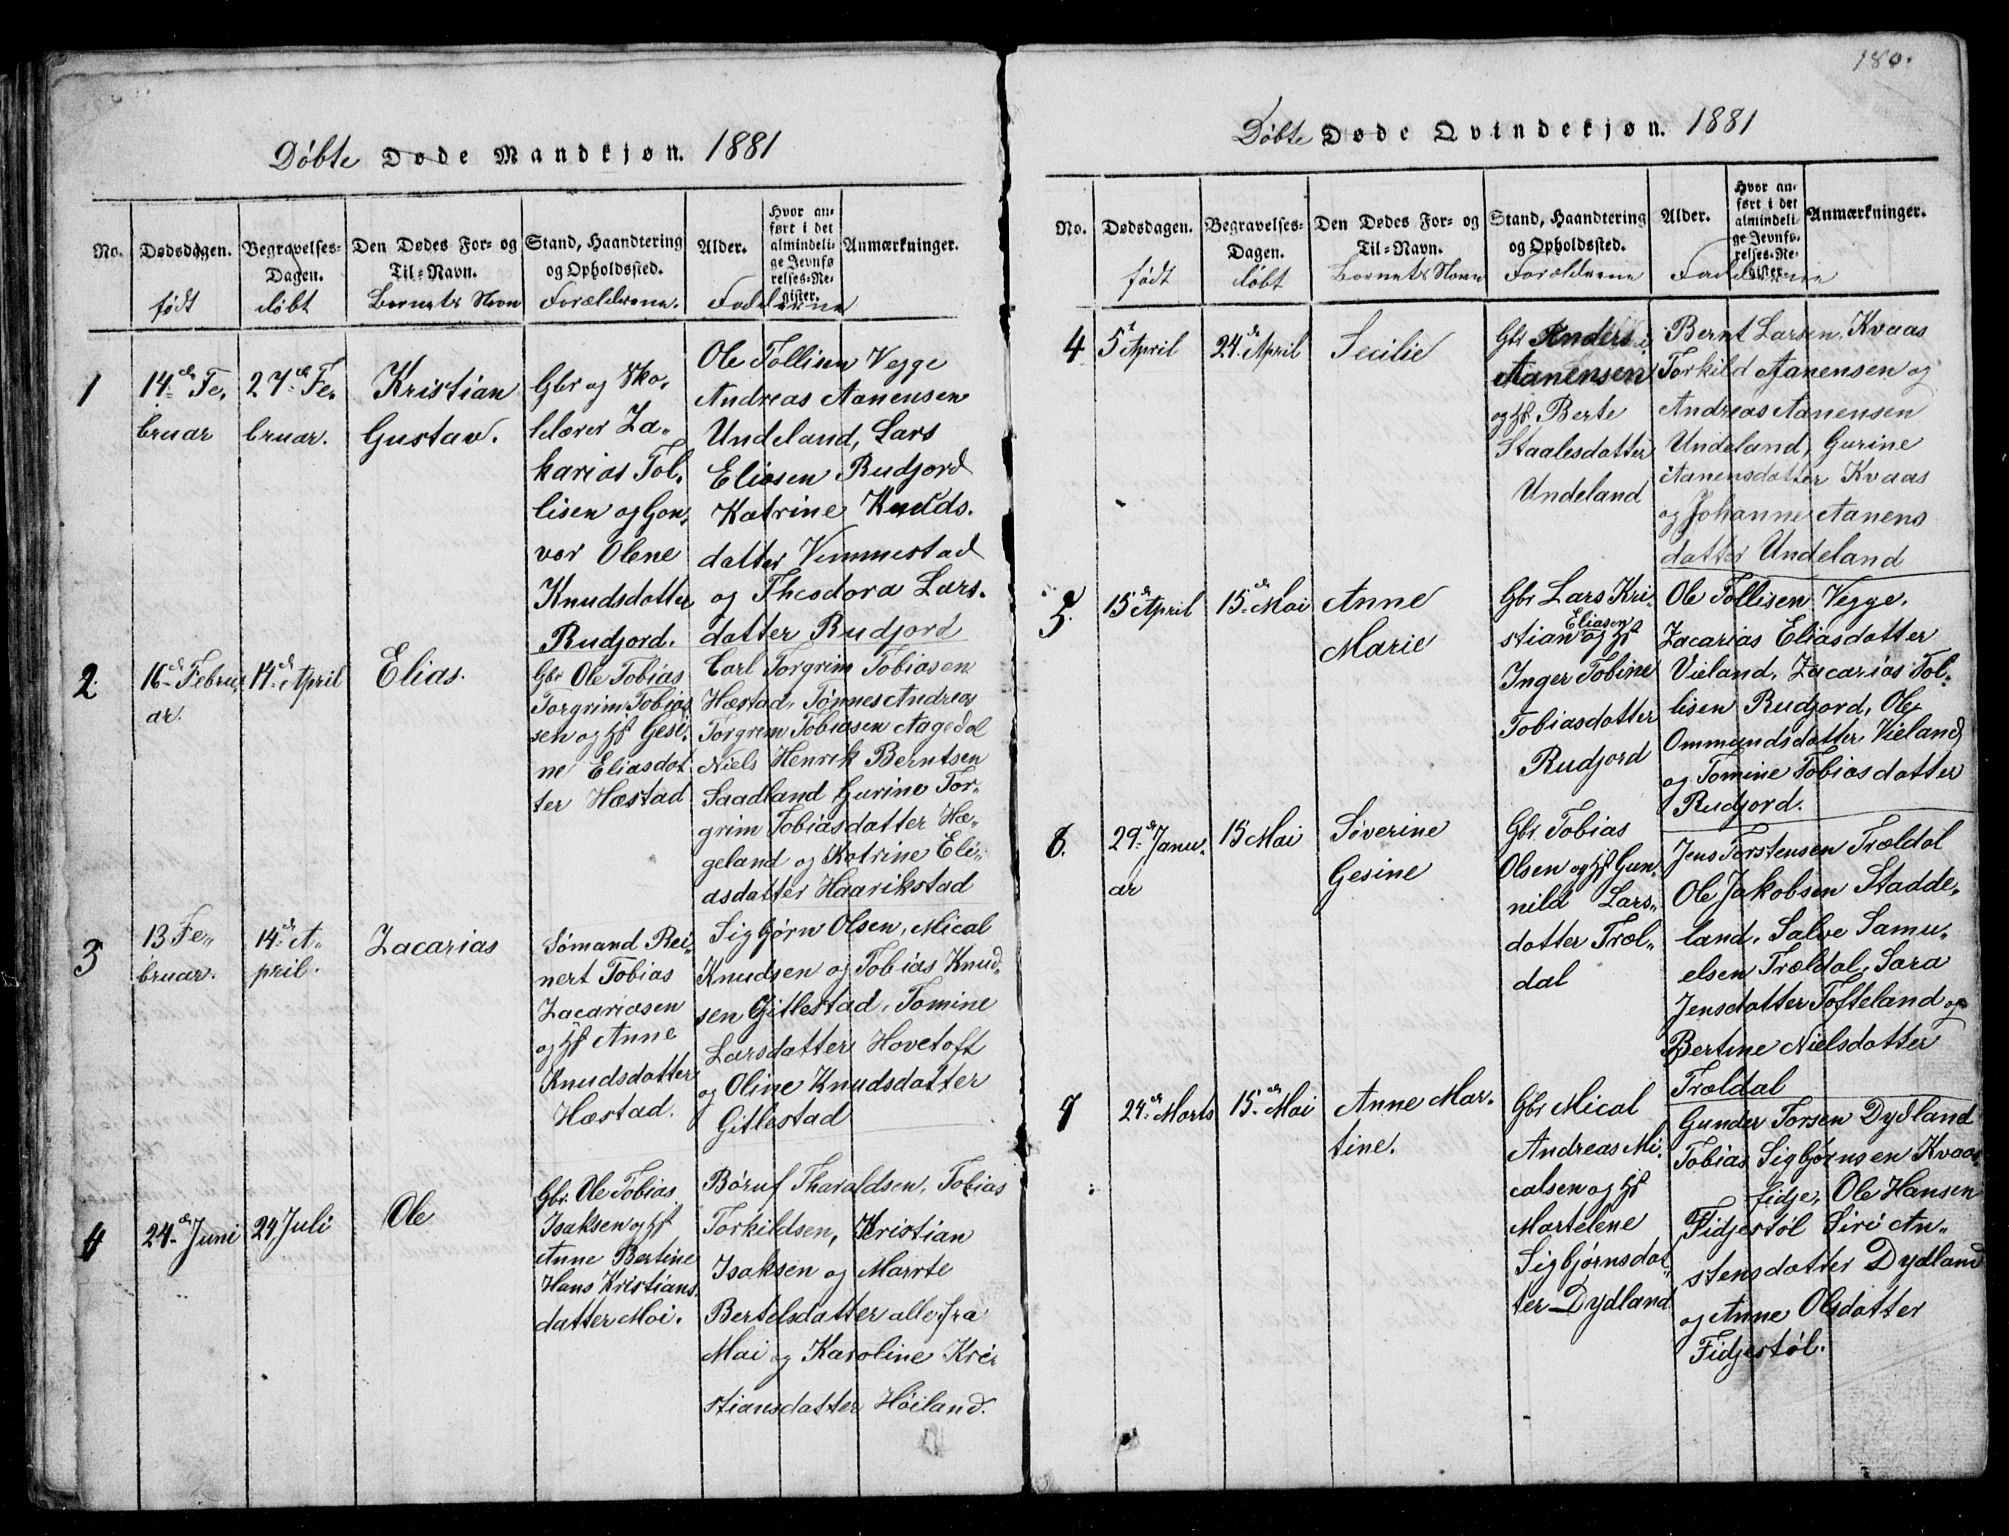 Døbte Døde Mandkjøn. 1881
No.
Dødsdagen.
født
Begravelses-
Dagen.
døbt
Den Dødes For- og
Til-Navn.
Barnets Navn
Stand, Haandtering
og Opholdssted.
Forældrene.
Alder.
Hvor an-
ført i det
almindeli-
ge Jevnfø-
relses-Re-
gister.
Anmærkninger.
Fadderne
1
14de Fe-
bruar
27de Fe-
bruar.
Kristian
Gustav.
Gbr og Sko-
lelærer Za-
karias Tol-
lisen og Gun-
vor Olene
Knudsdatter
Rudjord.
Ole Tollisen Vegge
Andreas Aanensen
Undeland, Lars
Eliasen Rudjord
Katrine Knuds-
datter Vemmestad
og Theodora Lars-
datter Rudjord
2
16de Febru-
ar.
14de April
Elias.
Gbr Ole Tobias
Torgrim Tobias
sen og Hst Gesi-
ne Eliasdat
ter Hæstad
Carl Torgrim Tobiasen
Hæstad, Tønnes Andreas
Torgrim Tobiasen Aagedal
Niels Henrik Berntsen
Saadland Gurine Tor-
grim Tobiasdatter Hæ-
geland og Katrine Eli-
asdatter Haarikstad
3
13 Fe-
bruar.
14de A-
pril.
Zacarias
Sømand Rei-
nert Tobias
Zacariasen
og Hst Anne
Knudsdatter
Hæstad.
Sigbjørn Olsen, Mical
Knudsen og Tobias Knud-
sen Gitlestad, Tomine
Larsdatter Hovetoft
og Oline Knudsdatter
Gitlestad
4
24de Juni
24 Juli
Ole
Gbr. Ole Tobias
Isaksen og Hst
Anne Bertine
Hans Kristians-
datter Moi.
Børuf Tharaldsen, Tobias
Torkildsen, Kristian
Isaksen og Marrte
Bertelsdatter alle fra
Moi og Karoline Kri-
stiansdatter Høiland.
180.
Døbte Døde Qvindekjøn. 1881
No.
Dødsdagen.
født
Begravelses-
Dagen.
døbt
Den Dødes For- og
Til-Navn.
Barnets Navn
Stand, Haandtering
og Opholdssted.
Forældrene
Alder.
Hvor an-
ført i det
almindeli-
ge Jevnfø-
relses-Re-
gister.
Anmærkninger.
Fadderne
4
5te April
24de April
Secilie
Gbr Anders
Aanensen
og Hst. Berte
Staalesdatter
Undeland
Bernt Larsen Kvaas
Torkild Aanensen og
Andreas Aanensen
Undeland, Gurine
Aanensdatter Kvaas
og Johanne Aanens
datter Undeland
5.
15de April
15de Mai
Anne
Marie
Gbr Lars Kri-
stian Eliasen og Hst
Inger Tobine
Tobiasdatter
Rudjord
Ole Tollisen Vegge.
Zacarias Eliasdatter
Vieland, Zacarias Tol-
lisen Rudjord, Ole
Ommundsdatter Vieland
og Tomine Tobiasdatter
Rudjord.
6.
29de Janu-
ar
15 Mai
Søverine
Gesine
Gbr. Tobias
Olsen og Hst Gun-
nild Lars-
datter Træl-
dal
Jens Torstensen Trældal
Ole Jakobsen Stadde-
land, Salve Samu-
elsen Trældal, Sara
Jensdatter Tofteland og
Bertine Nielsdatter
Trældal
7
24de Marts
15de Mai
Anne Mar-
tine.
Gbr Mical
Andreas Mi-
calsen og Hst
Martelene
Sigbjørnsdat-
ter Dydland
Gunder Torsen Dydland
Tobias Sigbjørnsen Kvaas-
fidje, Ole Hansen
Fidjestøl Siri An-
stensdatter Dydland
og Anne Olsdatter
Fidjestøl.